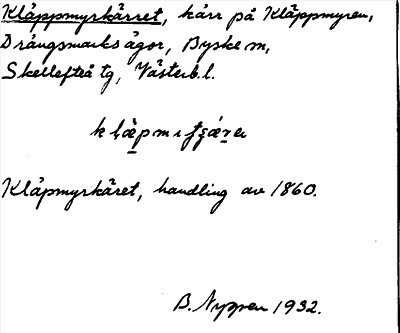 Kläppmyrkärret, kärr på Kläppmyren,
Drängsmarks ägor, Byske sn,
Skellefteå tg, Västerb. l.
Kläpmyrkäret, handling av 1860.
B. Nyppen 1932.